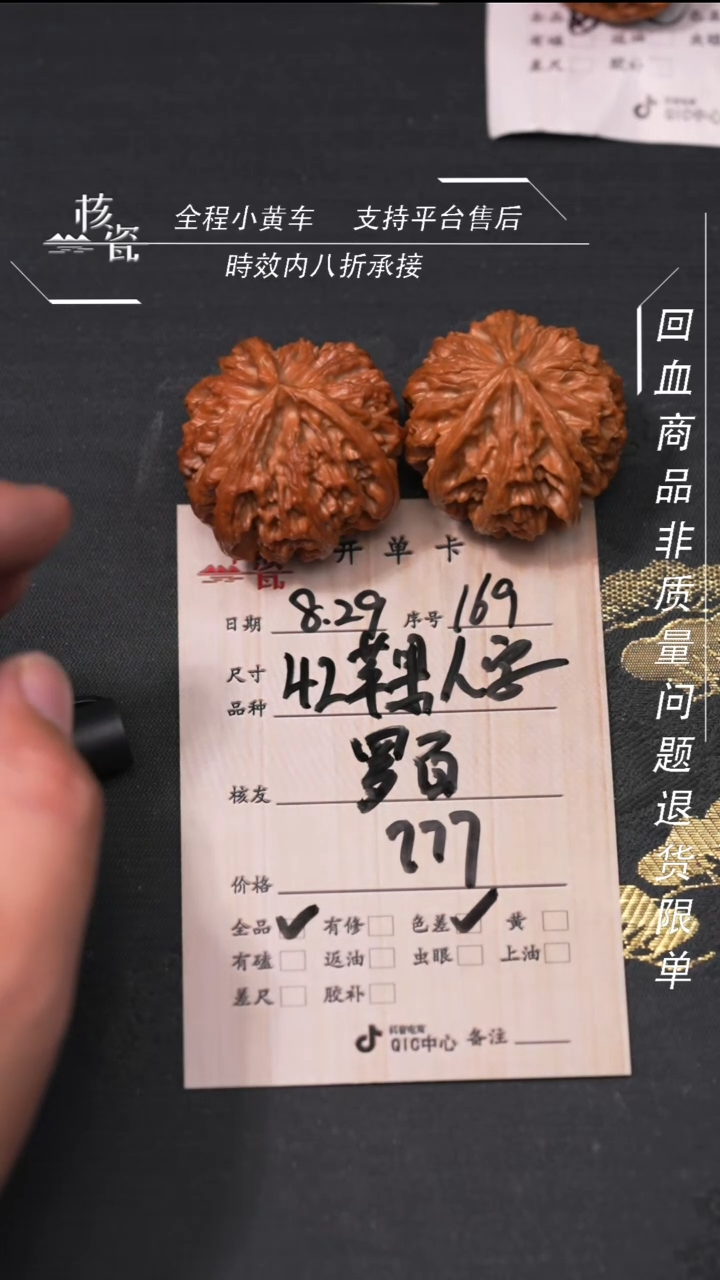 有磕 返油
差尺 胶补
QIC中心
核瓷
全程小黄车 支持平台售后
時效内八折承接
回血商品非质量问题退货限单
瓷 开单卡
日期 8.29 序号 169
尺寸
品种 42苹果人字
核友 罗百
价格 777
全品 ✓ 有修 色差 ✓ 黄
有磕 返油 虫眼 上油
差尺 胶补
抖音电商
QIC中心 备注